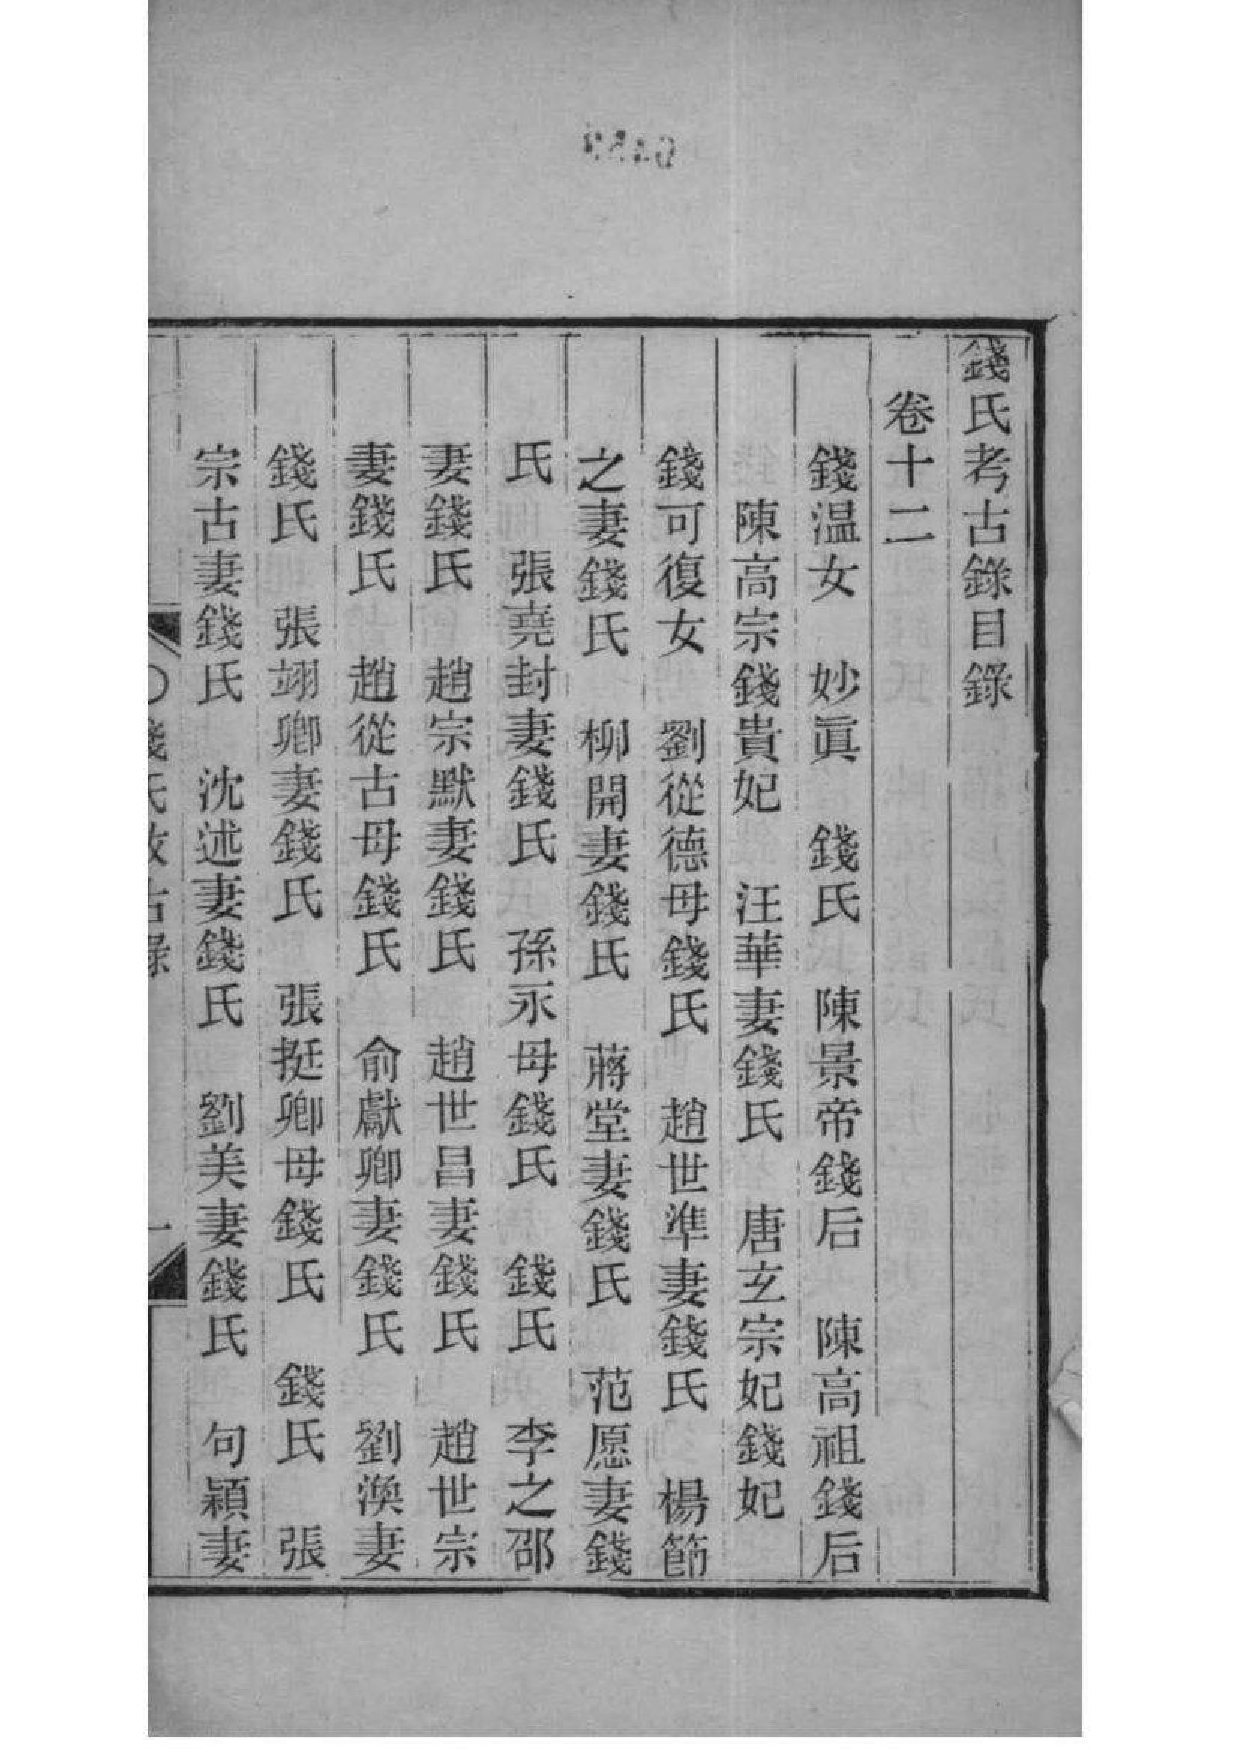 錢氏考古錄目錄
卷十二
錢温女　妙眞　錢氏　陳景帝錢后　陳高祖錢后
陳高宗錢貴妃　汪華妻錢氏　唐玄宗妃錢妃
錢可復女　劉從德母錢氏　趙世準妻錢氏　楊節
之妻錢氏　柳開妻錢氏　蔣堂妻錢氏　范愿妻錢
氏　張堯封妻錢氏　孫永母錢氏　錢氏　李之邵
妻錢氏　趙宗默妻錢氏　趙世昌妻錢氏　趙世宗
妻錢氏　趙從古母錢氏　俞獻卿妻錢氏　劉渙妻
錢氏　張翊卿妻錢氏　張挺卿母錢氏　錢氏　張
宗古妻錢氏　沈述妻錢氏　劉美妻錢氏　句穎妻
錢氏攷古錄
一